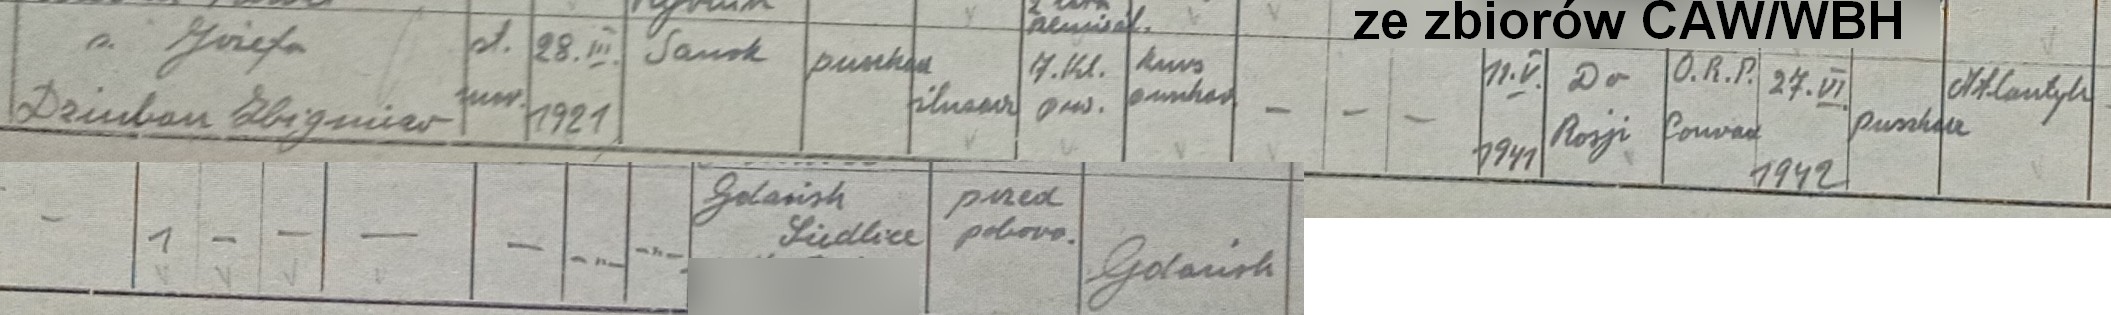 ze zbiorów CAW/WBH
s. Józefa
Dziuban Zbigniew
st.
mar.
28. III.
1921
Sanok
puszkar
ślusarz
rzemieśl.
7. kl.
pow.
kurs
puszkar.
– – –
11. V.
1941
Do
Rosji
O.R.P.
Conrad
27. VI.
1942
puszkarz
Atlantyk
– 1 – – – – –"– –"–
Gdańsk
Siedlice
przed
poborow.
Gdańsk